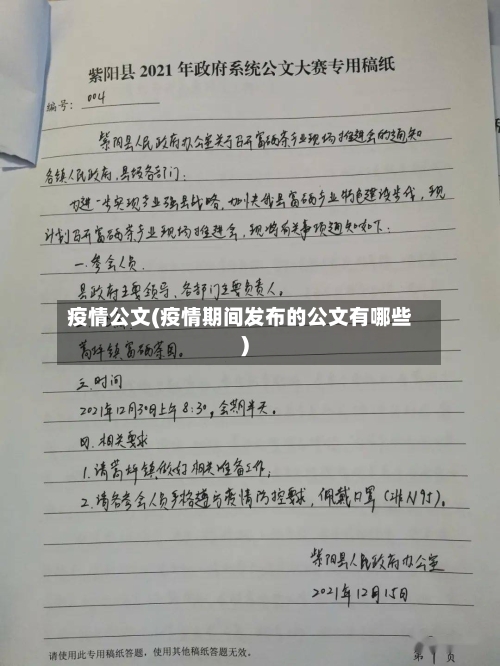 紫阳县2021年政府系统公文大赛专用稿纸
编号：004
紫阳县人民政府办公室关于召开富硒茶产业现场推进会的通知
各镇人民政府，县级各部门：
为进一步实现产业强县战略，加快我县富硒产业特色建设步伐，现
计划召开富硒茶产业现场推进会，现将有关事项通知如下：
一.参会人员.
县政府主要领导、各部门主要负责人。
疫情公文(疫情期间发布的公文有哪些
)
蒿坪镇富硒茶园。
三.时间
2021年12月30日上午8:30，会期半天。
四.相关要求
1.请蒿坪镇做好相关准备工作；
2.请各参会人员严格遵守疫情防控要求，佩戴口罩（非N95）。
紫阳县人民政府办公室
2021年12月15日
请使用此专用稿纸答题，使用其他稿纸答题无效。
第1页